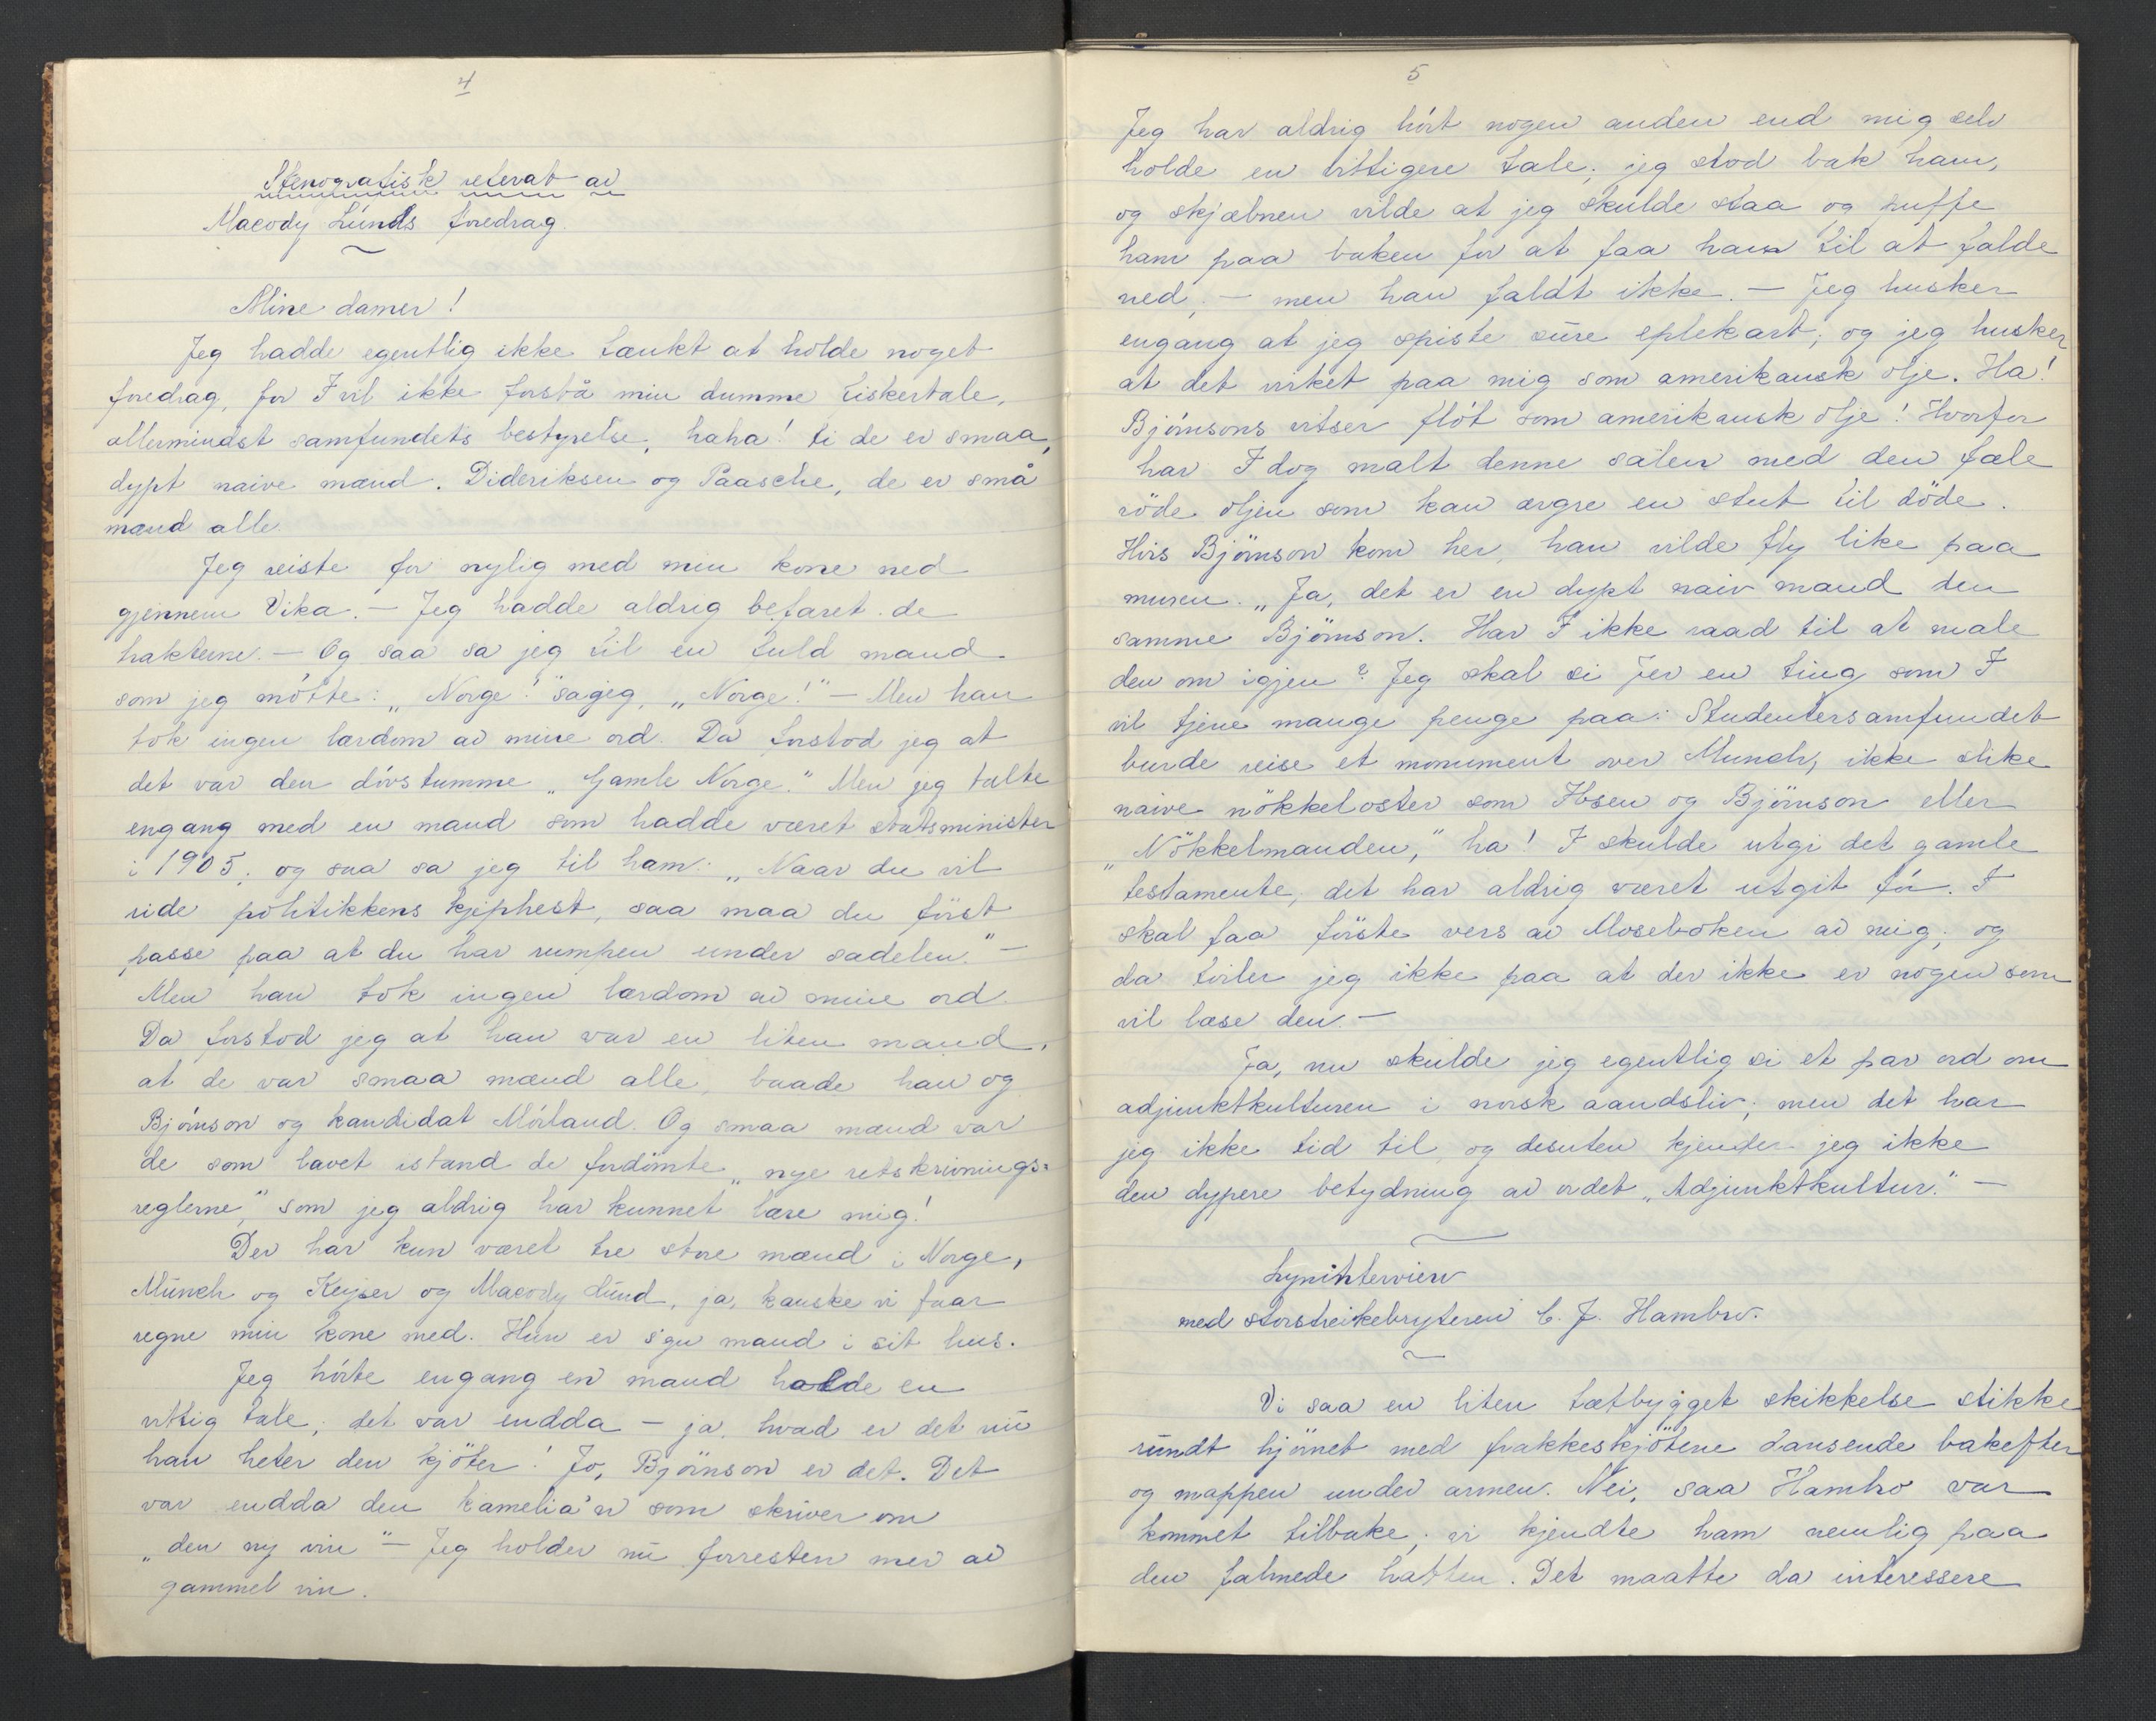 4
Stenografisk referat av
Macody Lúnds foredrag.
Mine damer!
Jeg hadde egentlig ikke tænkt at holde noget
foredrag, for I vil ikke forstå min dumme tiskertale,
allermindst samfundets bestyrelse, haha! ti de er smaa,
dypt naive mænd. Dideriksen og Paasche, de er små
mænd alle.
Jeg reiste for nylig med min kone ned
gjennem Vika. — Jeg hadde aldrig befaret de
trakterne. — Og saa sa jeg til en fuld mand
som jeg mötte: „Norge!" sa jeg, „Norge!" — Men han
tok ingen lærdom av mine ord. Da forstod jeg at
det var den dövstumme „Gamle Norge." Men jeg talte
engang med en mand som hadde været statsminister
i 1905; og saa sa jeg til ham: „Naar du vil
ride politikkens kjephest, saa maa du först
passe paa at du har rumpen under sadelen." —
Men han tok ingen lærdom av mine ord.
Da forstod jeg at han var en liten mand,
at de var smaa mænd alle, baade han og
Björnson og kandidat Mörland. Og smaa mænd var
de som lavet istand de fordömte „nye retskrivnings=
reglerne," som jeg aldrig har kunnet lære mig!
Der har kun været tre store mænd i Norge,
Múnch og Keyser og Macody Lúnd, ja, kanske vi faar
regne min kone med. Hun er s'gu mand i sit hus.
Jeg hörte engang en mand holde en
vittig tale; det var endda — ja, hvad er det nú
han heter den kjöter! Jo, Björnson er det. Det
var endda den kamelia'n som skriver om
„den ny vin" — Jeg holder nú forresten mer av
gammel vin.
5
Jeg har aldrig hört nogen anden end mig selv
holde en vittigere tale; jeg stod bak ham,
og skjæbnen vilde at jeg skulde staa og puffe
ham paa baken for at faa ham til at falde
ned; — men han faldt ikke. — Jeg husker
engang at jeg spiste súre eplekart; og jeg husker
at det virket paa mig som amerikansk olje. Ha!
Björnsons vitser flöt som amerikansk olje! Hvorfor
har I dog malt denne salen med den fæle
röde oljen som kan ærgre en stut til döde.
Hvis Björnson kom her, han vilde fly like paa
muren. „Ja, det er en dypt naiv mand den
samme Björnson. Har I ikke raad til at male
den om igjen? Jeg skal si jer en ting som I
vil tjene mange penge paa: Studentersamfundet
burde reise et monument over Munch, ikke slike
naive nökkeloster som Ibsen og Björnson eller
„Nökkelmanden," ha! I skulde utgi det gamle
testamente; det har aldrig været utgit för. I
skal faa förste vers av Moseboken av mig; og
da tviler jeg ikke paa at der ikke er nogen som
vil læse den. —
Ja, nu skulde jeg egentlig si et par ord om
adjunktkulturen i norsk aandsliv; men det har
jeg ikke tid til, og desuten kjender jeg ikke
den dypere betydning av ordet „Adjunktkultur." —
Lyninterview
med storstreikebryteren C. J. Hambro.
Vi saa en liten tætbygget skikkelse stikke
rúndt hjörnet med frakkeskjötene dansende bakefter
og mappen under armen. Nei, saa Hambro var
kommet tilbake; vi kjendte ham nemlig paa
den falmede hatten. Det maatte da interessere